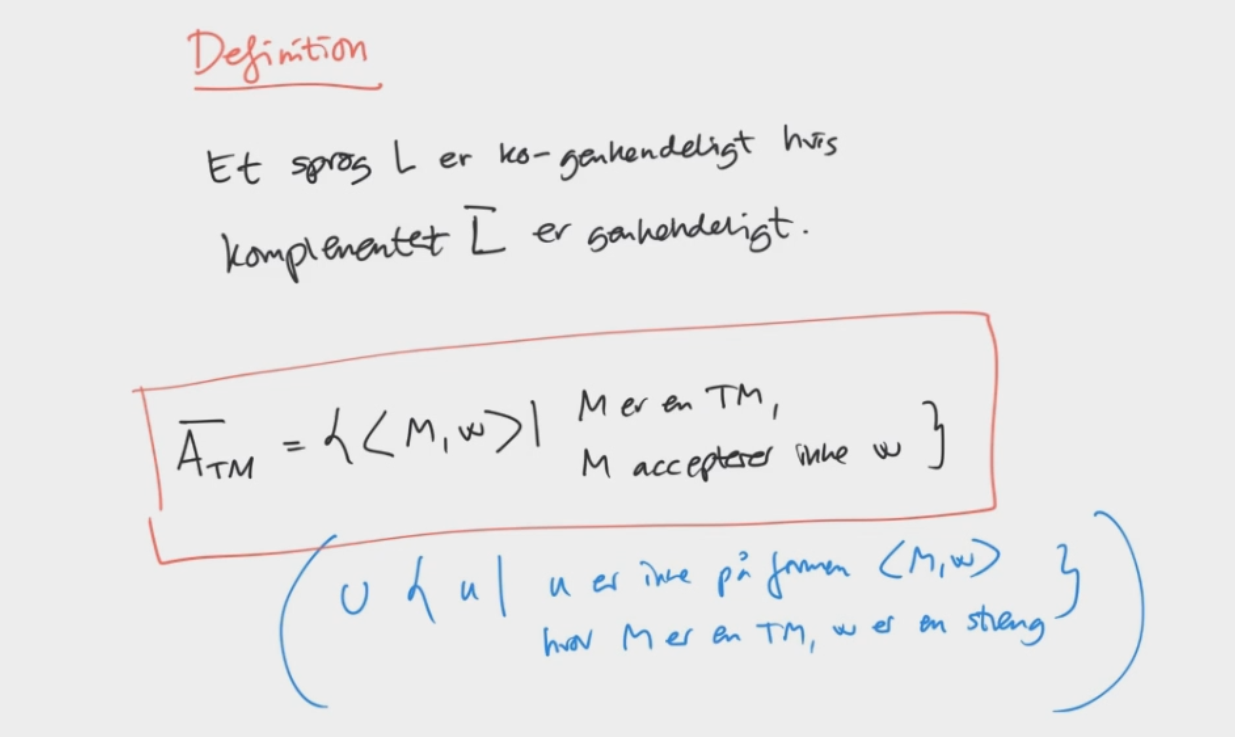 Definition
Et sprog L er ko-genkendeligt hvis
komplementet L̅ er genkendeligt.
A̅_TM = {<M,w>| M er en TM,
M accepterer ikke w }
( ∪ { u | u er ikke på formen <M,w>
hvor M er en TM, w er en streng } )